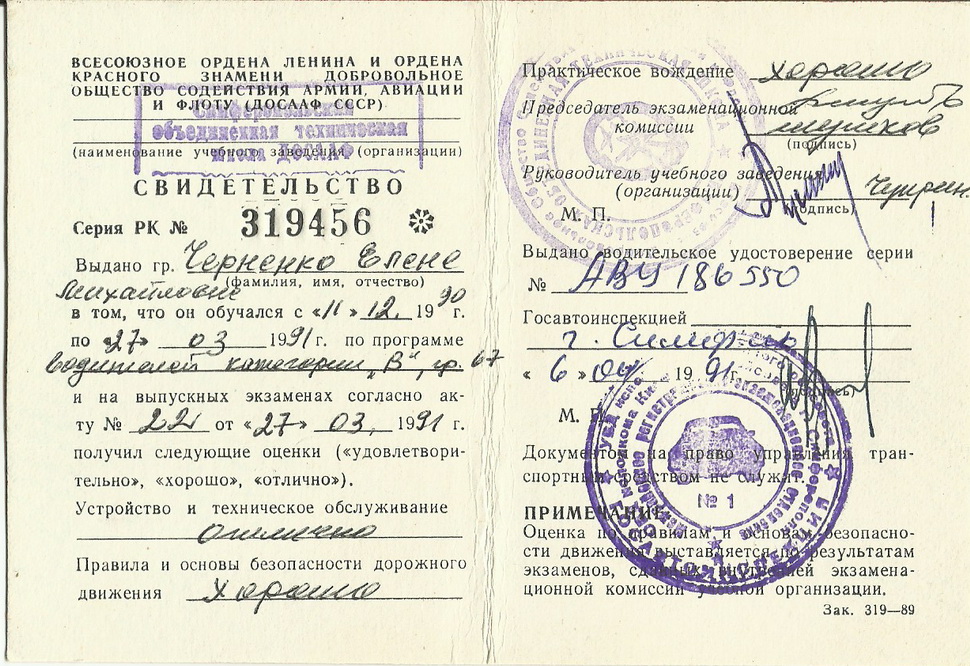 ВСЕСОЮЗНОЕ ОРДЕНА ЛЕНИНА И ОРДЕНА
КРАСНОГО ЗНАМЕНИ ДОБРОВОЛЬНОЕ
ОБЩЕСТВО СОДЕЙСТВИЯ АРМИИ, АВИАЦИИ
И ФЛОТУ (ДОСААФ СССР)
Симферопольская
объединенная техническая
школа ДОСААФ
(наименование учебного заведения (организации)
СВИДЕТЕЛЬСТВО
Серия РК № 319456
Выдано гр. Черненко Елене
(фамилия, имя, отчество)
Михайловне
в том, что он обучался с «11» 12. 1990 г.
по «27» 03 1991 г. по программе
водителей категории „В", гр. 67
и на выпускных экзаменах согласно ак-
ту № 22 от «27» 03. 1991 г.
получил следующие оценки («удовлетвори-
тельно», «хорошо», «отлично»).
Устройство и техническое обслуживание
отлично
Правила и основы безопасности дорожного
движения хорошо
Практическое вождение хорошо
Председатель экзаменационной
комиссии
(подпись)
Руководитель учебного заведения
(организации)
(подпись)
М. П.
Выдано водительское удостоверение серии
№ АВЧ 186550
Госавтоинспекцией
г. Симфер
«6» 04 1991 г.
(подпись)
М. П.
Документом на право управления тран-
спортным средством не служит.
№ 1
ПРИМЕЧАНИЕ
Оценка по правилам и основам безопасно-
сти движения выставляется по результатам
экзаменов, сданных внутренней экзамена-
ционной комиссии учебной организации.
Зак. 319—89